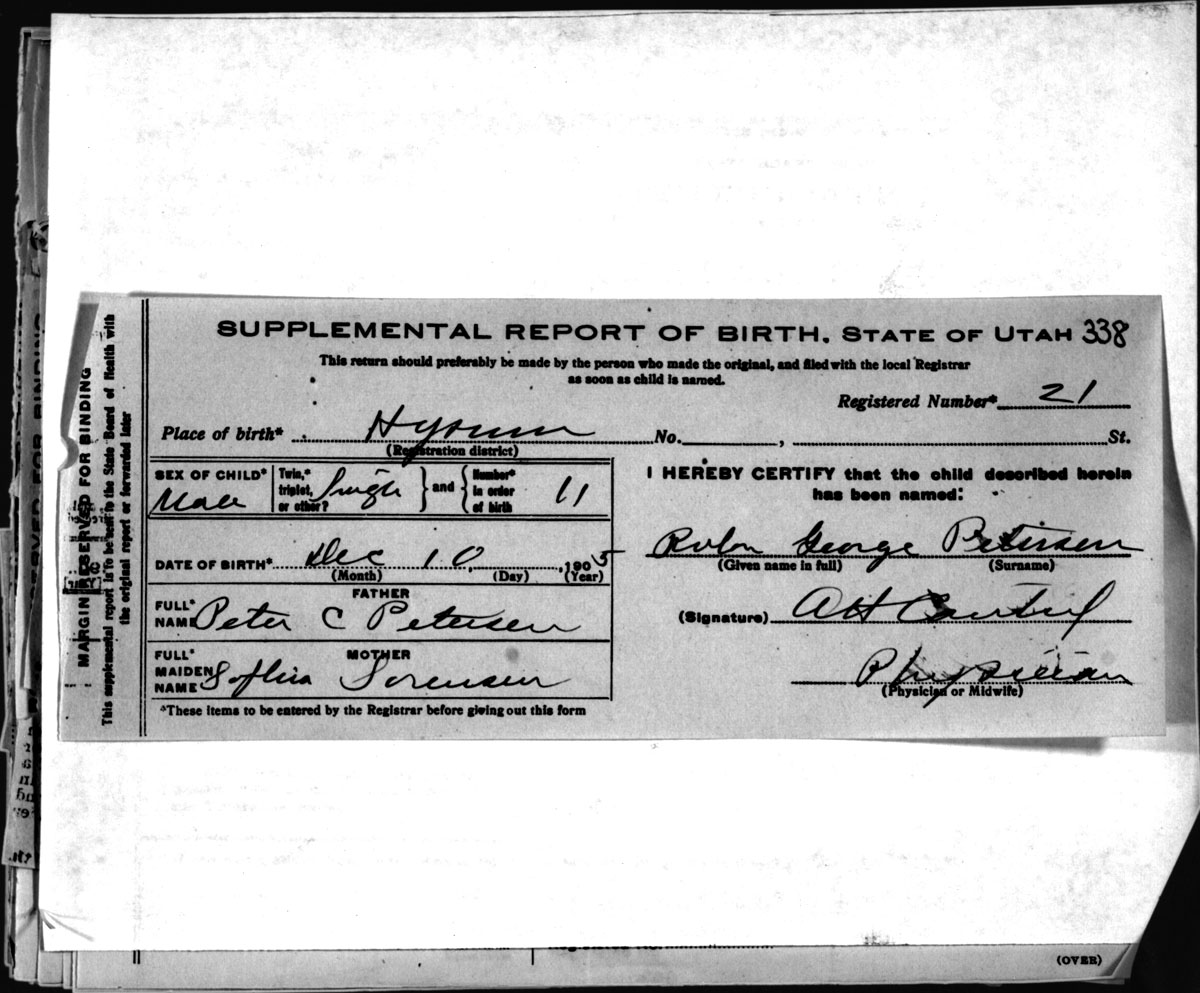 SUPPLEMENTAL REPORT OF BIRTH. STATE OF UTAH 338
This return should preferably be made by the person who made the original, and filed with the local Registrar
as soon as child is named.
Registered Number* 21
Place of birth* Hyrum No. , St.
(Registration district)
SEX OF CHILD* Male
Twin,* triplet, or other? Single } and { Number* in order of birth 11
DATE OF BIRTH* Dec 10 , 1905
(Month) (Day) (Year)
FATHER
FULL* NAME Peter C Petersen
MOTHER
FULL* MAIDEN NAME Sorensen
*These items to be entered by the Registrar before giving out this form
I HEREBY CERTIFY that the child described herein
has been named:
George Petersen
(Given name in full) (Surname)
(Signature) A H
Physician
(Physician or Midwife)
MARGIN RESERVED FOR BINDING
This supplemental report is to be sent to the State Board of Health with
the original report or forwarded later
(OVER)